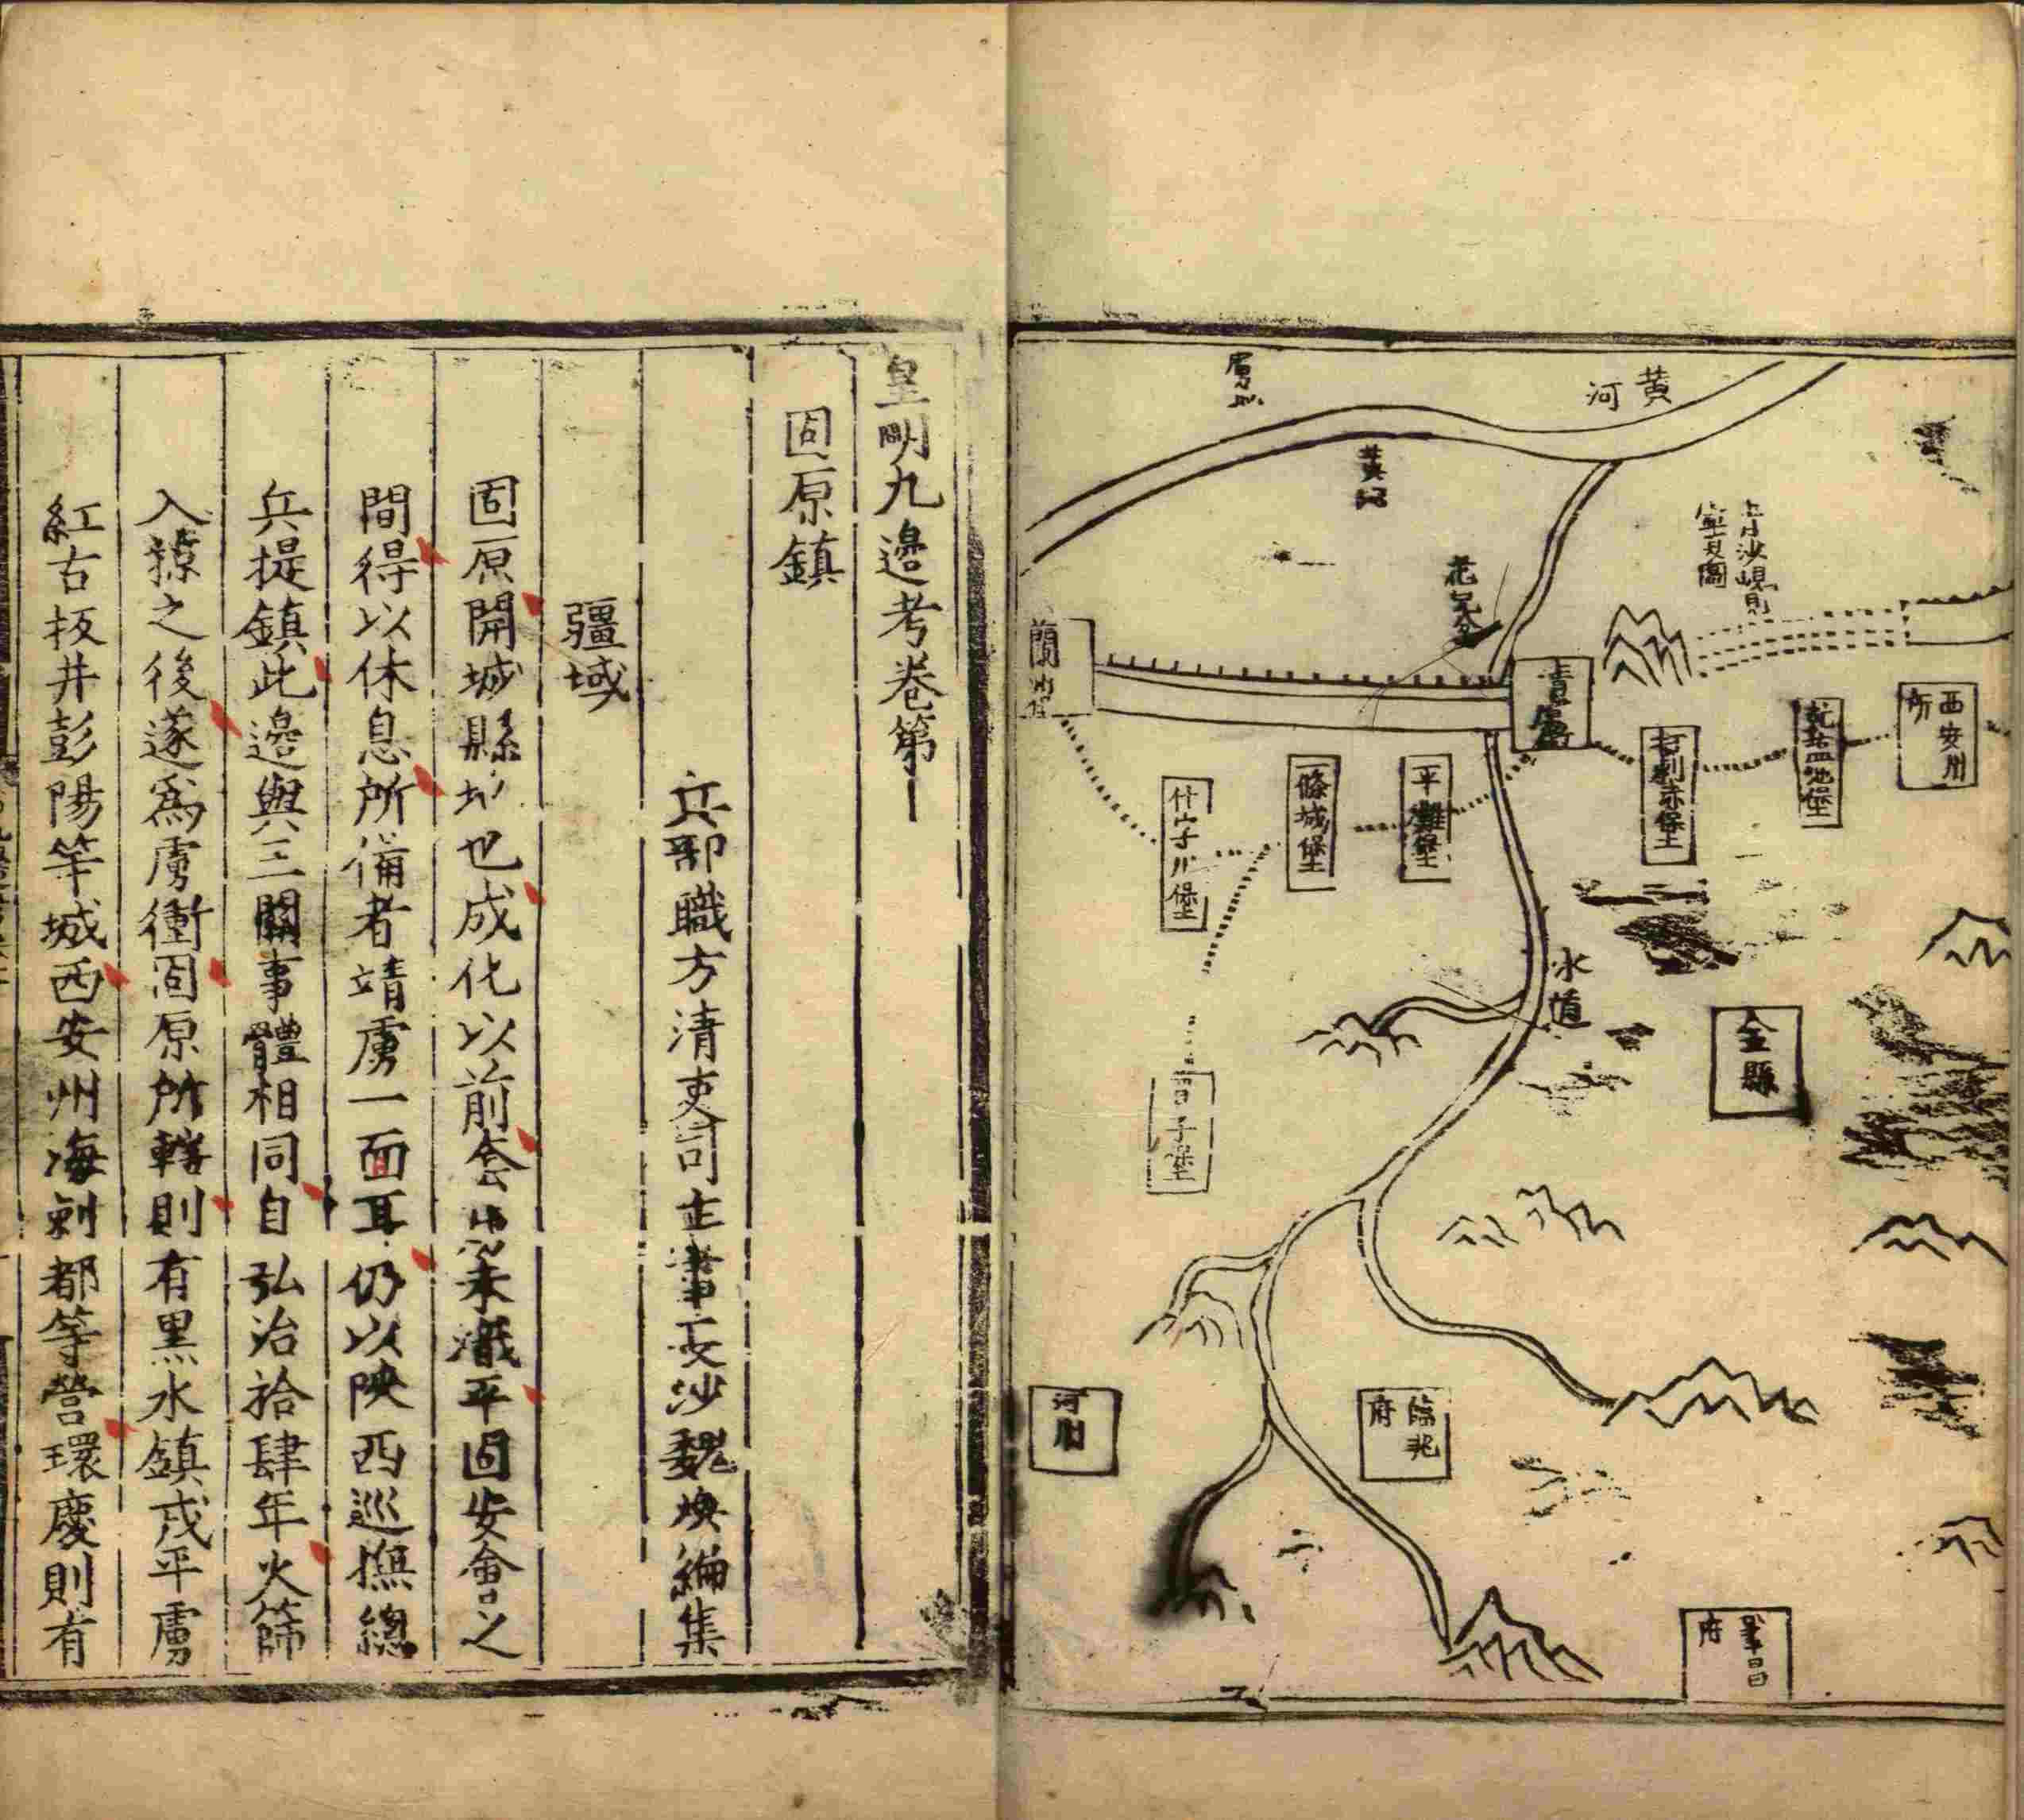 黃河
黃河
水道
西安州所
乾塩池堡
打剌赤堡
平灘堡
一條城堡
什字川堡
子堡
金縣
臨洮府
河州
府
皇明九邊考卷第
固原鎮
兵部職方清吏司主事長沙魏煥編集
疆域
固原開城縣地也成化以前套虜未熾平固安會之
間得以休息所備者靖虜一面耳仍以陝西巡撫總
兵提鎮此邊與三關事體相同自弘治拾肆年火篩
入掠之後遂爲虜衝固原所轄則有黑水鎮戎平虜
紅古板井彭陽等城西安州海剌都等營環慶則有